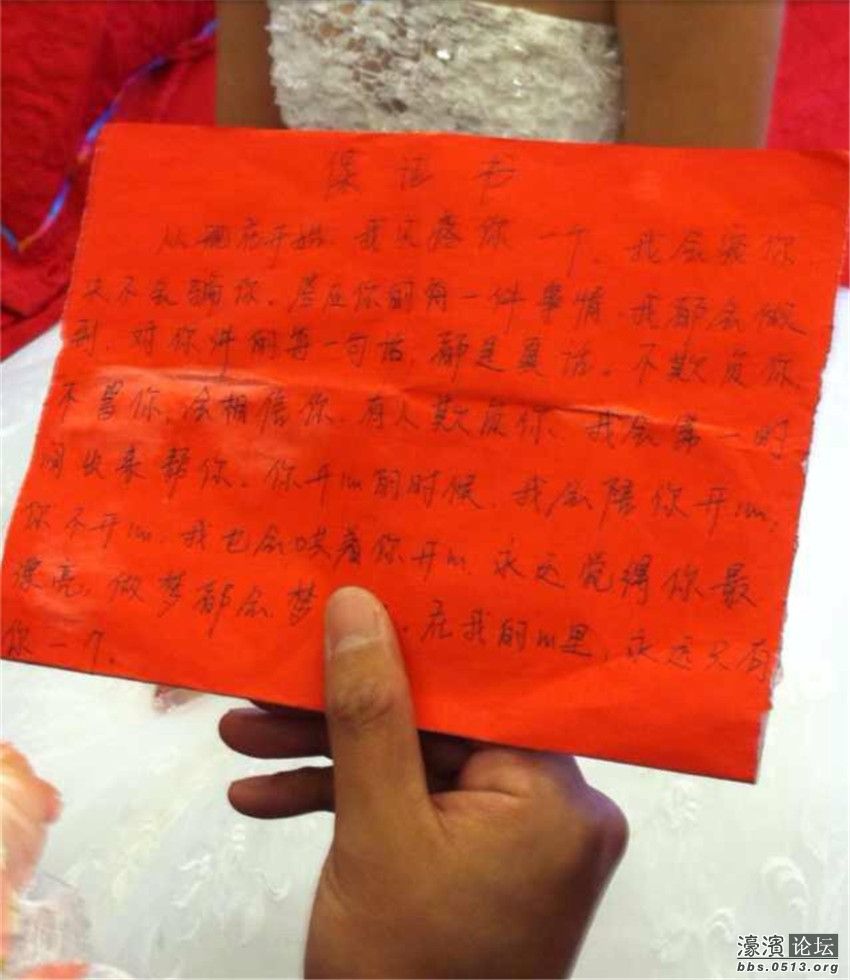 保证书
从现在开始,我只疼你一个,我会宠你
决不会骗你。答应你的每一件事情,我都会做
到,对你讲的每一句话,都是真话。不欺负你
不骂你,会相信你,有人欺负你,我会第一时
间出来帮你。你开心的时候,我会陪你开心,
你不开心,我也会哄着你开心,永远觉得你最
漂亮,做梦都会梦。在我的心里,永远只有
你一个。
濠濱论坛
bbs.0513.org